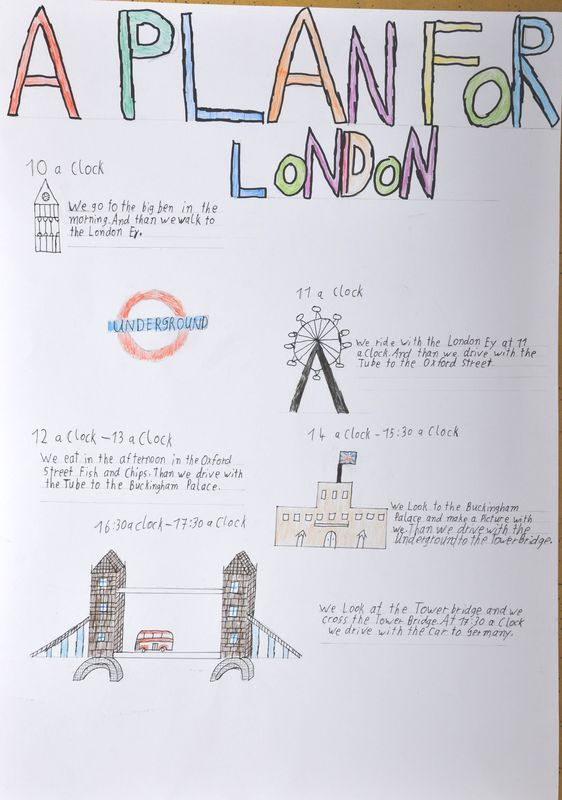 A PLAN FOR
LONDON
10 a Clock
We go to the big ben in the
morning. And than we walk to
the London Ey.
UNDERGROUND
11 a Clock
We ride with the London Ey at 11
a Clock. And than we drive with the
Tube to the Oxford Street.
12 a Clock - 13 a Clock
We eat in the afternoon in the Oxford
Street Fish and Chips. Than we drive with
the Tube to the Buckingham Palace.
14 a Clock - 15:30 a Clock
We Look to the Buckingham
Palace and make a Picture with
we. Than we drive with the
Underground to the Towerbridge.
16:30 a Clock - 17:30 a Clock
We Look at the Towerbridge and we
cross the Tower Bridge. At 17:30 a Clock
we drive with the Car to Germany.